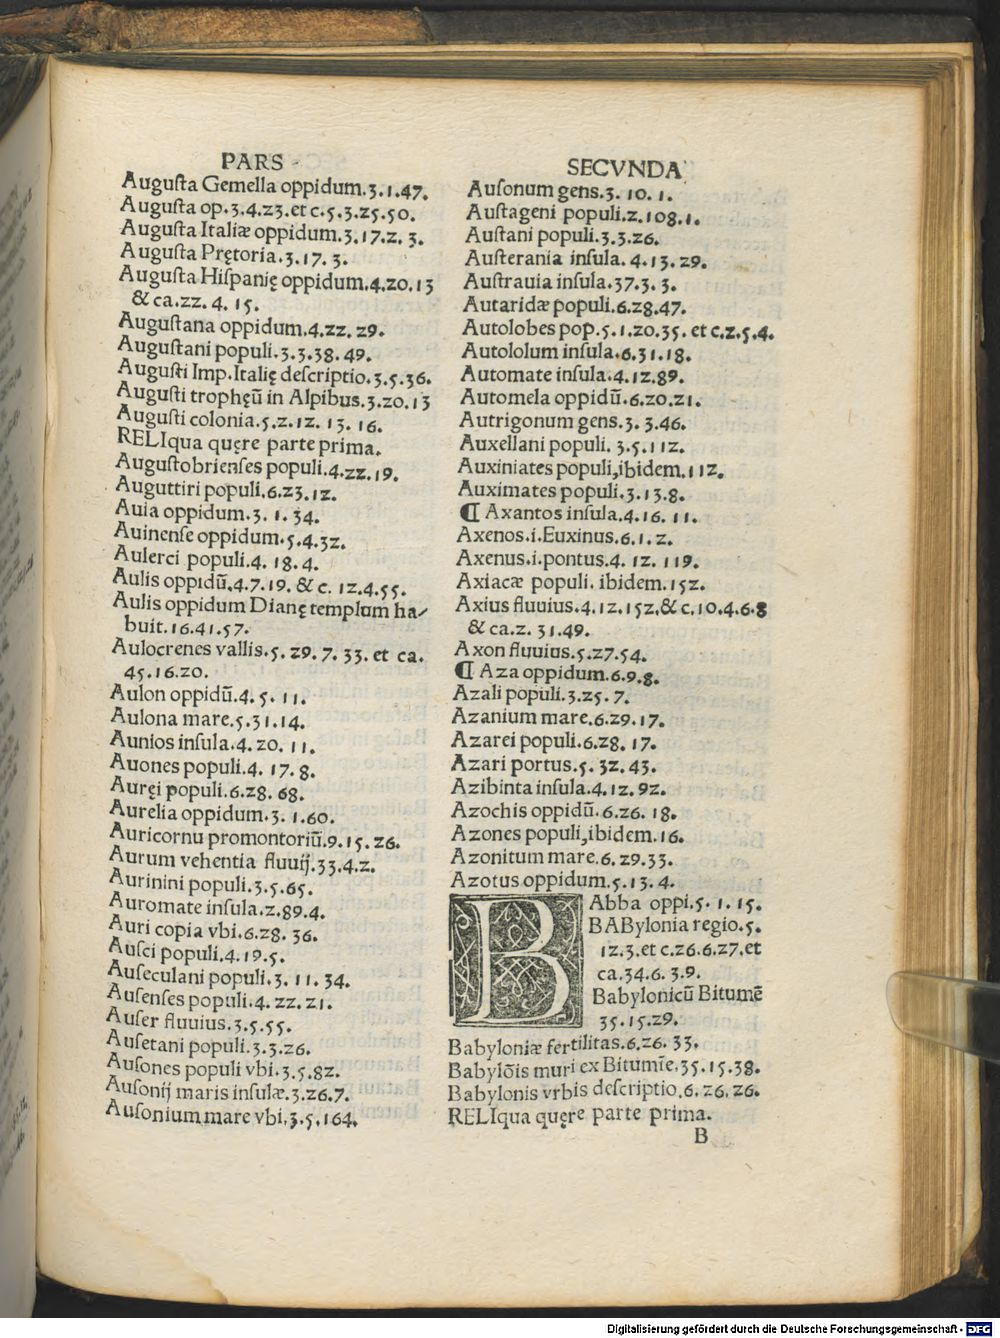 PARS
Auguſta Gemella oppidum.3.1.47.
Auguſta op.3.4.23.et c.5.3.25.50.
Auguſta Italiæ oppidum.3.17.2. 3.
Auguſta Prętoria.3.17. 3.
Auguſta Hiſpanię oppidum.4.20.13
& ca.22. 4. 15.
Auguſtana oppidum.4.22. 29.
Auguſtani populi.3.3.38. 49.
Auguſti Imp.Italię deſcriptio.3.5.36.
Auguſti trophęū in Alpibus.3.20.13
Auguſti colonia.5.2.12. 13. 16.
RELIqua quęre parte prima.
Auguſtobrienſes populi.4.22.19.
Auguttiri populi.6.23.12.
Auia oppidum.3. 1. 34.
Auinenſe oppidum.5.4.32.
Aulerci populi.4. 18.4.
Aulis oppidū.4.7.19. & c. 12.4.55.
Aulis oppidum Dianę templum ha/
buit.16.41.57.
Aulocrenes vallis.5. 29. 7. 33. et ca.
45.16.20.
Aulon oppidū.4. 5. 11.
Aulona mare.5.31.14.
Aunios inſula.4. 20. 11.
Auones populi.4. 17. 8.
Auręi populi.6.28. 68.
Aurelia oppidum.3. 1.60.
Auricornu promontoriū.9.15.26.
Aurum vehentia fluuij.33.4.2.
Aurinini populi.3.5.65.
Auromate inſula.2.89.4.
Auri copia vbi.6.28. 36.
Auſci populi.4.19.5.
Auſeculani populi.3. 11. 34.
Auſenſes populi.4. 22. 21.
Auſer fluuius.3.5.55.
Auſetani populi.3.3.26.
Auſones populi vbi.3.5.82.
Auſonij maris inſulæ.3.26.7.
Auſonium mare vbi.3.5.164.
SECVNDA
Auſonum gens.3. 10. 1.
Auſtageni populi.2.108.1.
Auſtani populi.3.3.26.
Auſterania inſula. 4.13. 29.
Auſtrauia inſula.37.3. 3.
Autaridæ populi.6.28.47.
Autolobes pop.5.1.20.35. et c.2.5.4.
Autololum inſula.6.31.18.
Automate inſula.4.12.89.
Automela oppidū.6.20.21.
Autrigonum gens.3. 3.46.
Auxellani populi. 3.5.112.
Auxiniates populi,ibidem.112.
Auximates populi.3.13.8.
¶ Axantos inſula.4.16. 11.
Axenos.i.Euxinus.6.1.2.
Axenus.i.pontus.4. 12. 119.
Axiacæ populi. ibidem.152.
Axius fluuius.4.12.152.& c.10.4.6.8
& ca.2. 31.49.
Axon fluuius.5.27.54.
¶ Aza oppidum.6.9.8.
Azali populi.3.25. 7.
Azanium mare.6.29.17.
Azarei populi.6.28. 17.
Azari portus.5. 32. 43.
Azibinta inſula.4.12. 92.
Azochis oppidū.6.26. 18.
Azones populi,ibidem.16.
Azonitum mare.6. 29.33.
Azotus oppidum.5.13. 4.
BAbba oppi.5. 1. 15.
BABylonia regio.5.
12.3.et c.26.6.27.et
ca.34.6. 3.9.
Babylonicū Bitumē
35.15.29.
Babyloniæ fertilitas.6.26. 33.
Babylōis muri ex Bitumīe.35.15.38.
Babylonis vrbis deſcriptio.6.26.26.
RELIqua quęre parte prima.
B
Digitalisierung gefördert durch die Deutsche Forschungsgemeinschaft - DFG